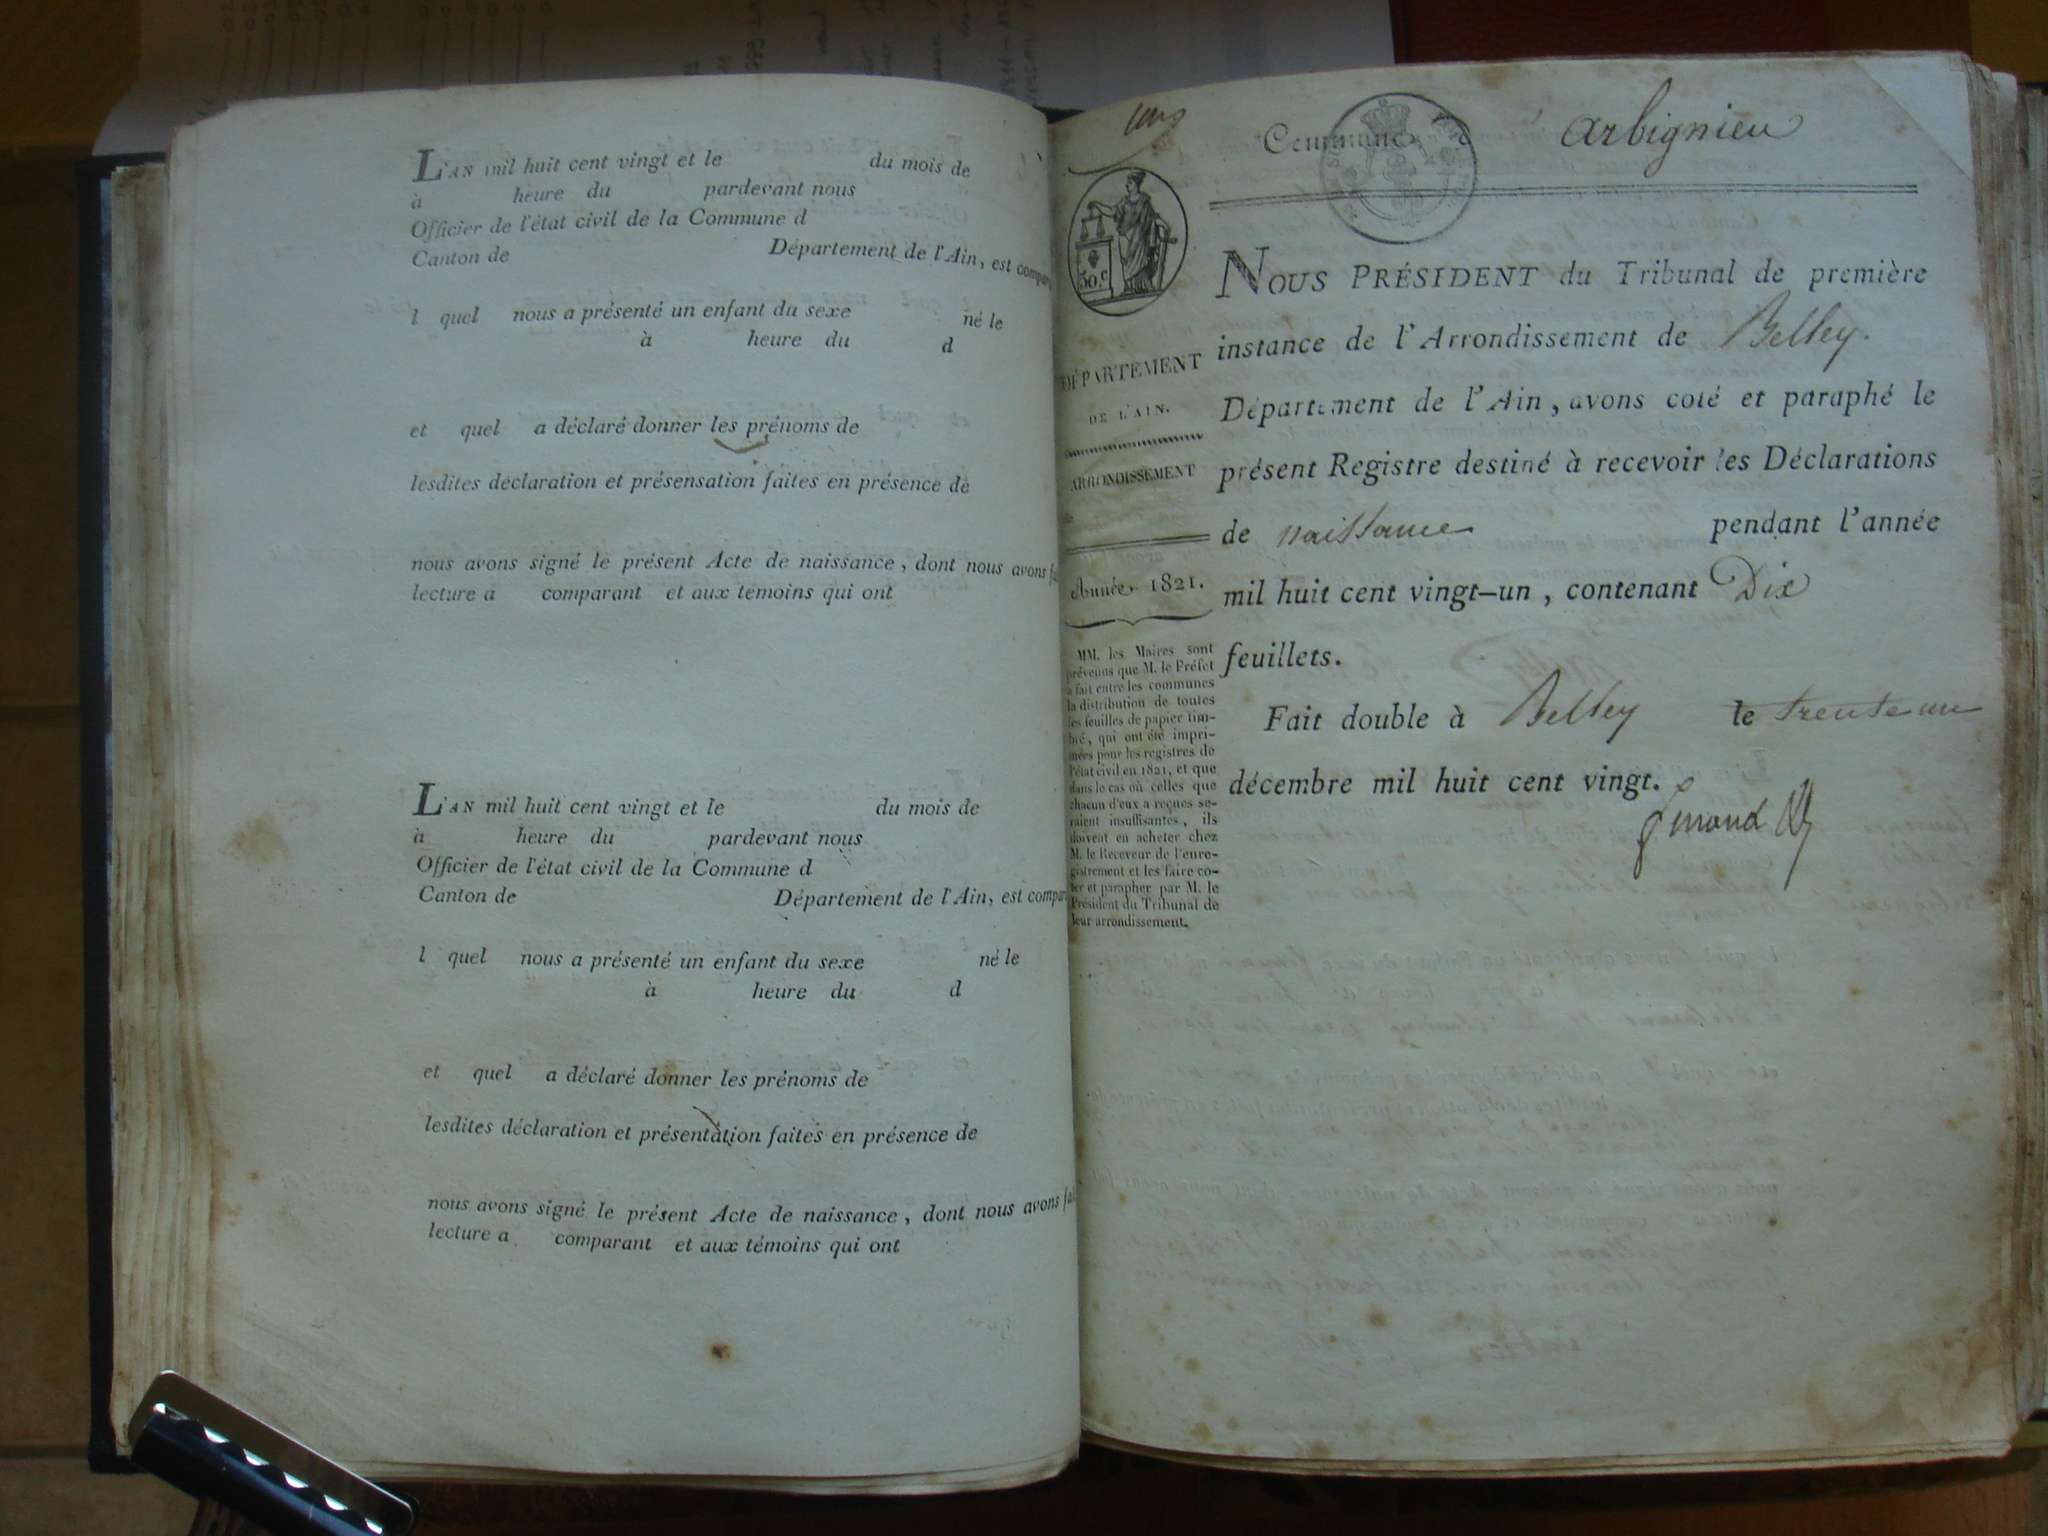 L'AN mil huit cent vingt et le du mois de
à heure du pardevant nous
Officier de l'état civil de la Commune d
Canton de Département de l'Ain, est compar
l quel nous a présenté un enfant du sexe né le
à heure du d
et quel a déclaré donner les prénoms de
lesdites déclaration et présensation faites en présence de
nous avons signé le présent Acte de naissance, dont nous avons fai
lecture a comparant et aux témoins qui ont
L'AN mil huit cent vingt et le du mois de
à heure du pardevant nous
Officier de l'état civil de la Commune d
Canton de Département de l'Ain, est compar
l quel nous a présenté un enfant du sexe né le
à heure du d
et quel a déclaré donner les prénoms de
lesdites déclaration et présentation faites en présence de
nous avons signé le présent Acte de naissance, dont nous avons fai
lecture a comparant et aux témoins qui ont
Commune d' Arbignieu
50 c
DÉPARTEMENT
DE L'AIN.
ARRONDISSEMENT
de
Année 1821.
MM. les Maires sont
prévenus que M. le Préfet
a fait entre les communes
la distribution de toutes
les feuilles de papier tim-
bré, qui ont été impri-
mées pour les registres de
l'état civil en 1821, et que
dans le cas où celles que
chacun d'eux a reçues se-
raient insuffisantes, ils
doivent en acheter chez
M. le Receveur de l'enre-
gistrement et les faire co-
ter et parapher par M. le
Président du Tribunal de
leur arrondissement.
NOUS PRÉSIDENT du Tribunal de première
instance de l'Arrondissement de Belley.
Département de l'Ain, avons coté et paraphé le
présent Registre destiné à recevoir les Déclarations
de naissance pendant l'année
mil huit cent vingt-un, contenant Dix
feuillets.
Fait double à Belley le trente un
décembre mil huit cent vingt.